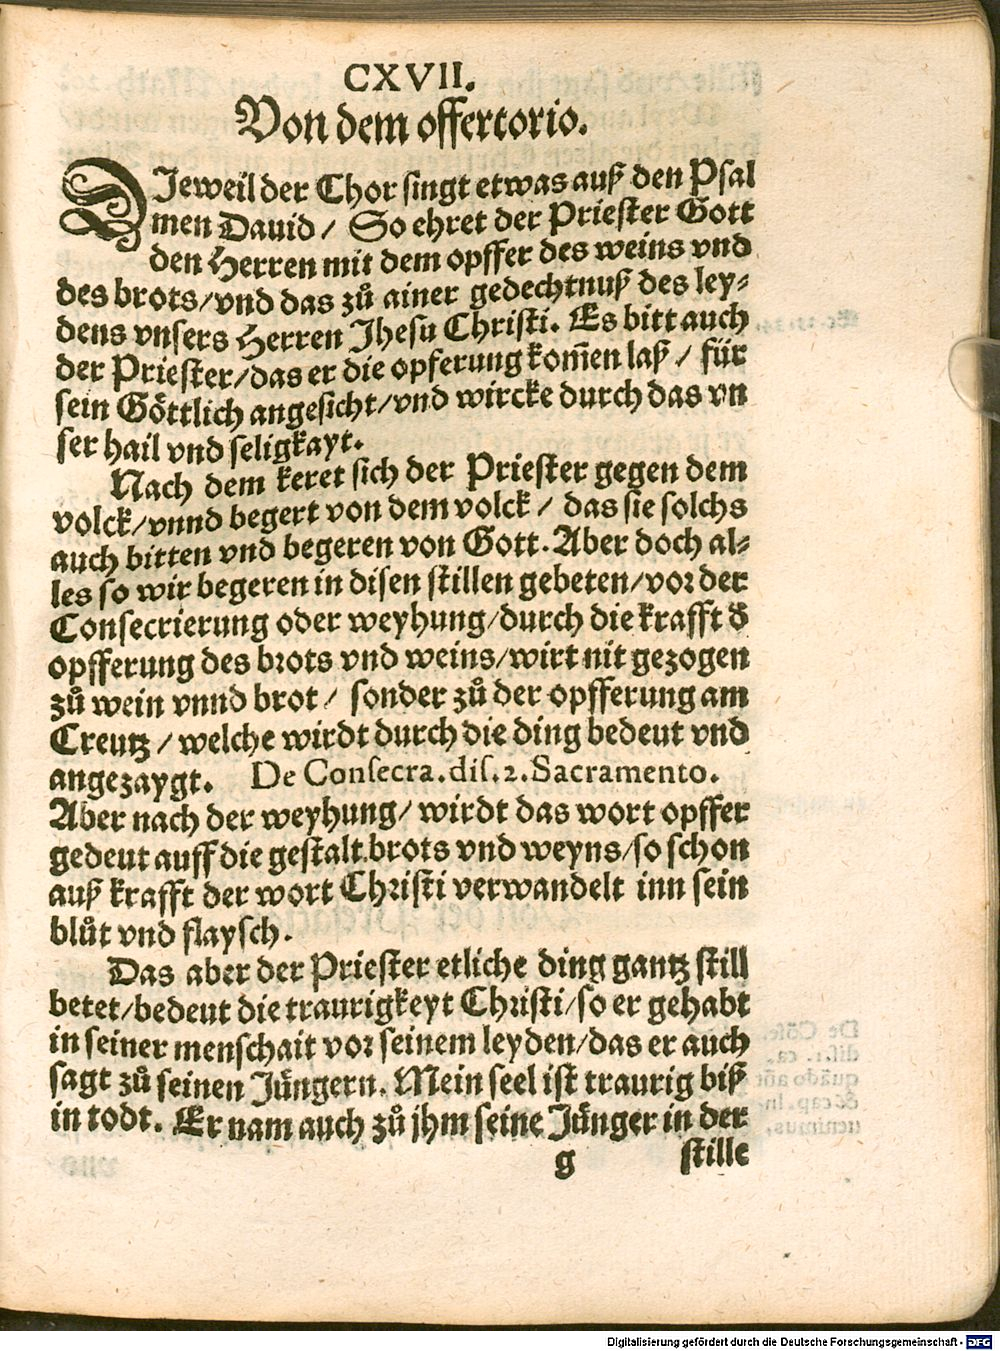 CXVII.
Von dem offertorio.
DJeweil der Chor singt etwas auß den Psal
men Dauid / So ehret der Priester Gott
den Herren mit dem opffer des weins vnd
des brots/vnd das zů ainer gedechtnuß des ley⸗
dens vnsers Herren Jhesu Christi. Es bitt auch
der Priester/das er die opferung kom̄en laß / für
sein Göttlich angesicht/vnd wircke durch das vn
ser hail vnd seligkayt.
Nach dem keret sich der Priester gegen dem
volck/vnnd begert von dem volck / das sie solchs
auch bitten vnd begeren von Gott. Aber doch al⸗
les so wir begeren in disen stillen gebeten/vor der
Consecrierung oder weyhung/durch die krafft d̄
opfferung des brots vnd weins/wirt nit gezogen
zů wein vnnd brot / sonder zů der opfferung am
Creutz /welche wirdt durch die ding bedeut vnd
angezaygt. De Consecra.dis.2.Sacramento.
Aber nach der weyhung/ wirdt das wort opffer
gedeut auff die gestalt brots vnd weyns/so schon
auß krafft der wort Christi verwandelt inn sein
blůt vnd flaysch.
Das aber der Priester etliche ding gantz still
betet/bedeut die traurigkeyt Christi/so er gehabt
in seiner menschait vor seinem leyden/das er auch
sagt zů seinen Jüngern. Mein seel ist traurig biß
in todt. Er nam auch zů jhm seine Jünger in der
g stille
Digitalisierung gefördert durch die Deutsche Forschungsgemeinschaft - DFG